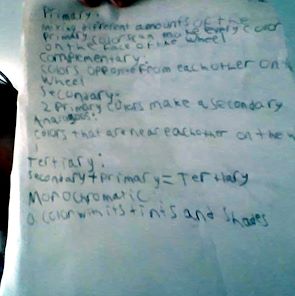 Primary:
mixing different amounts of the
Primary colors can make every color
on the face of the wheel
Complementary:
colors opposite from each other on
wheel
Secondary:
2 Primary colors make a secondary
Analogous:
colors that are near each other on the
Tertiary:
secondary + primary = Tertiary
Monochromatic
a color with its tints and shades